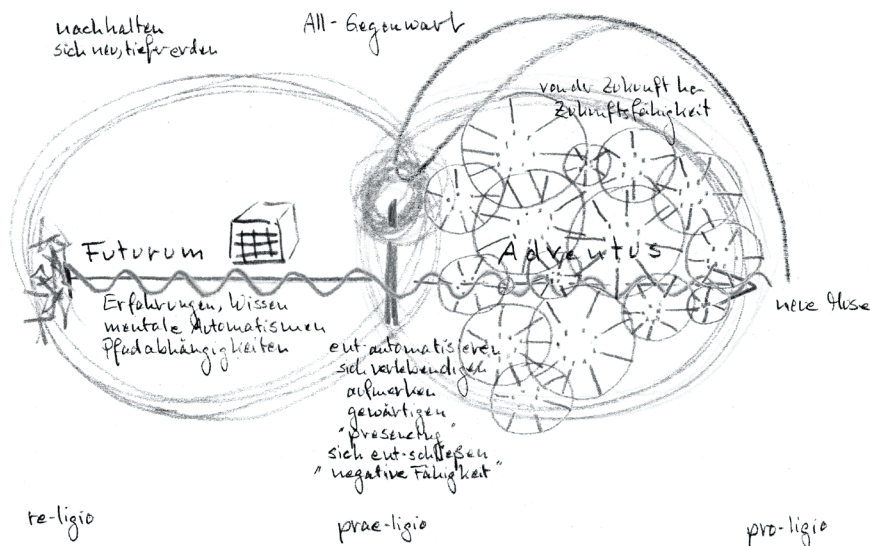 nachhalten
sich neu, tiefer erden
All-Gegenwart
von der Zukunft her
Zukunftsfähigkeit
Futurum
Adventus
Erfahrungen, Wissen
mentale Automatismen
Pfadabhängigkeiten
neue Muse
ent-automatisieren
sich verlebendigen
aufmerken
gewärtigen
"presencing"
sich ent-schließen
"negative Fähigkeit"
re-ligio
prae-ligio
pro-ligio